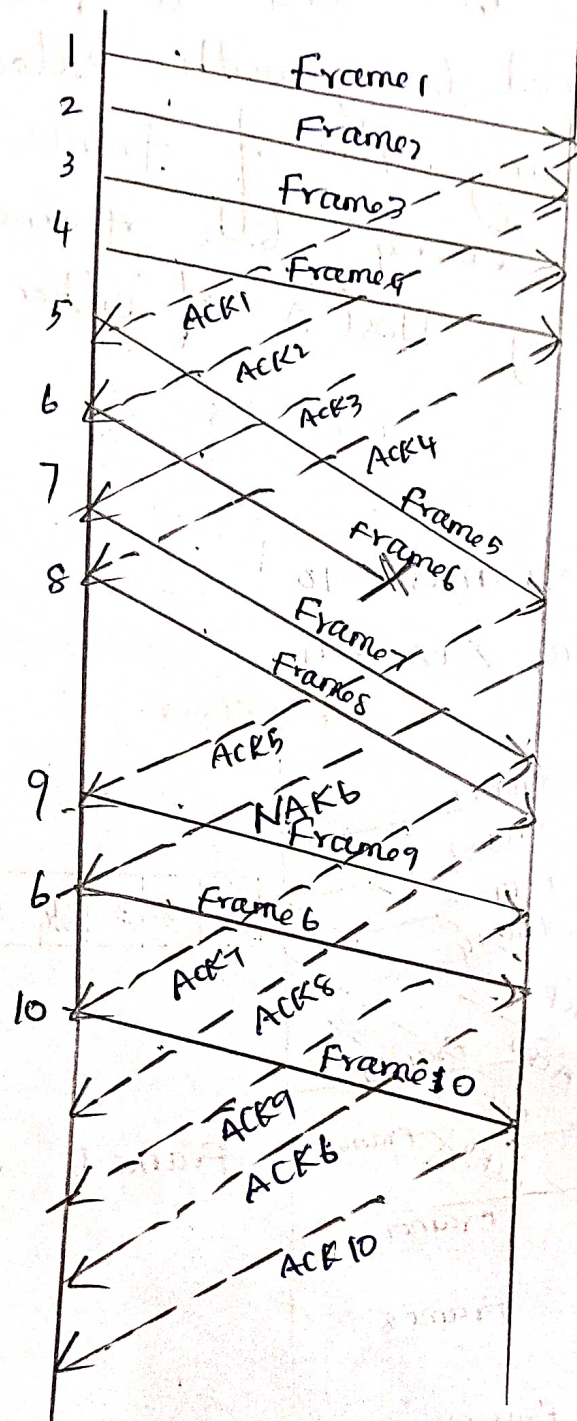 1
Frame1
2
Frame2
3
Frame3
4
Frame4
5
ACK1
ACK2
6
ACK3
ACK4
7
Frame5
Frame6
8
Frame7
Frame8
ACK5
9
NAK6
Frame9
6
Frame6
ACK7
10
ACK8
Frame10
ACK9
ACK6
ACK10